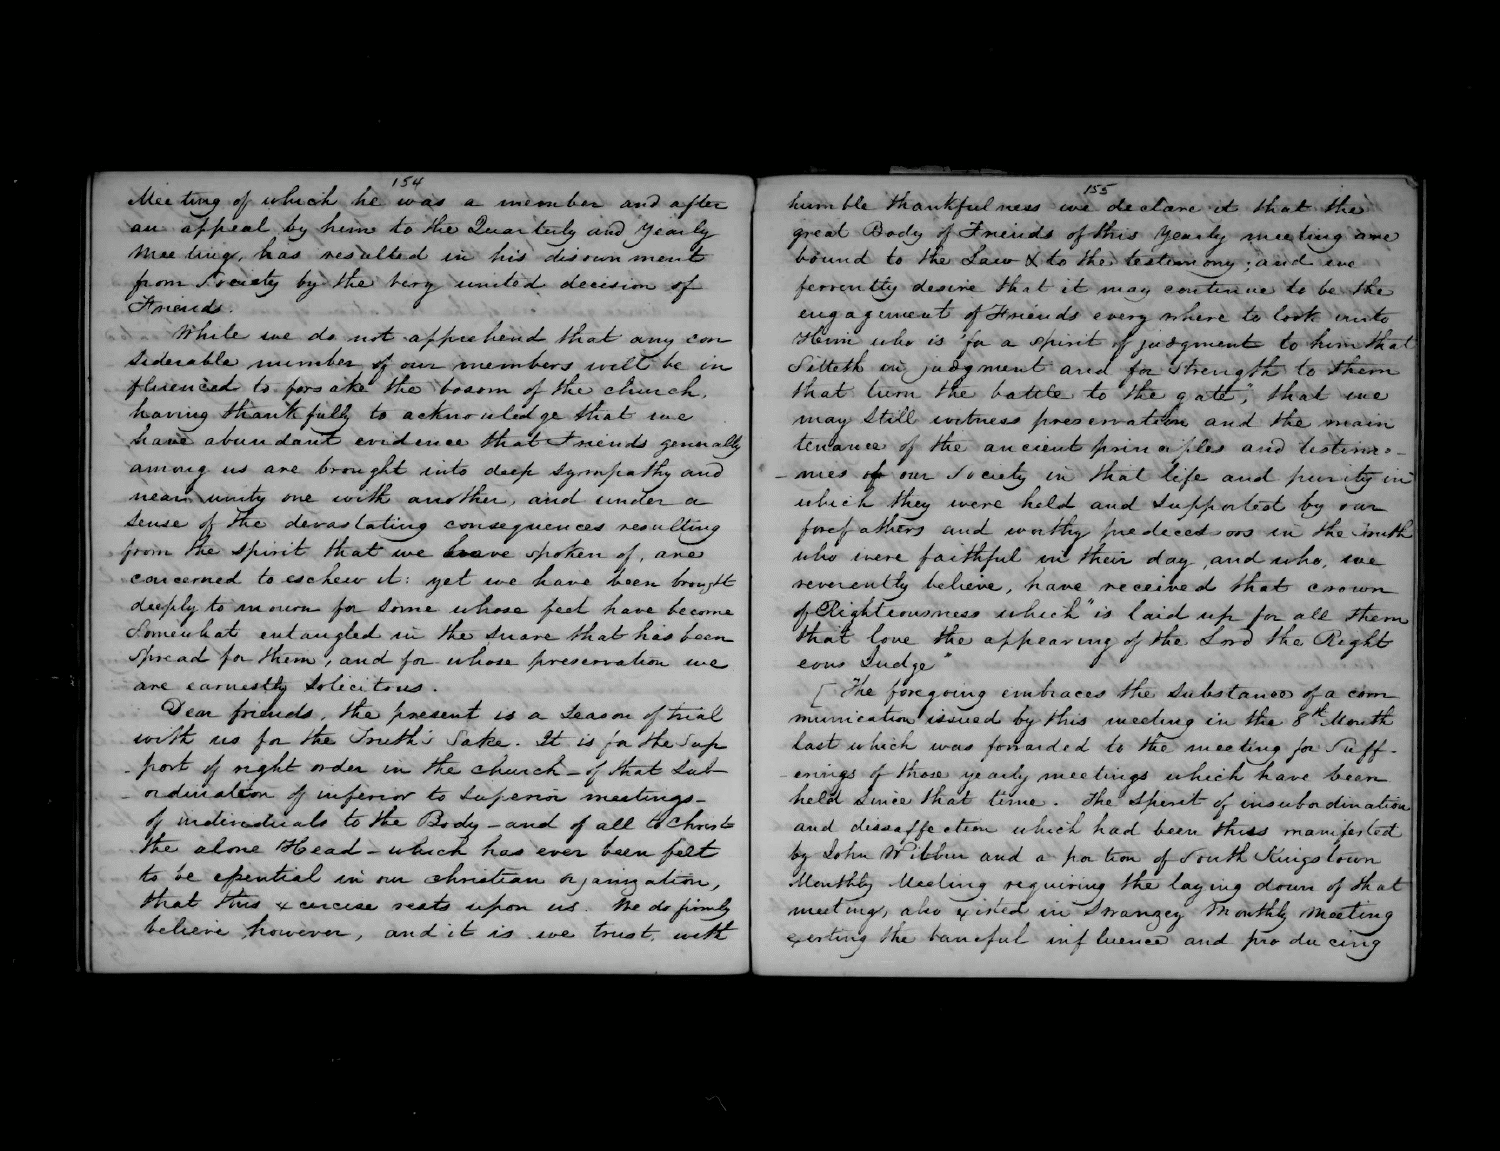 154
Meeting of which he was a member and after
an appeal by him to the Quarterly and Yearly
Meeting, has resulted in his disownment
from Society by the very united decision of
Friends.
While we do not apprehend that any con
siderable number of our members will be in
fluenced to forsake the bosom of the church,
having thankfully to acknowledge that we
have abundant evidence that Friends generally
among us are brought into deep sympathy and
near unity one with another, and under a
sense of the devastating consequences resulting
from the spirit that we have spoken of, are
concerned to eschew it: yet we have been brought
deeply to mourn for some whose feet have become
Somewhat entangled in the snare that has been
spread for them, and for whose preservation we
are earnestly solicitous.
Dear friends, the present is a season of trial
with us for the Truth's Sake. It is for the Sup
-port of right order in the church - of that sub-
-ordination of inferior to superior meetings -
of individuals to the Body - and of all to Christ
the alone Head - which has ever been felt
to be essential in our christian organization,
that this exercise rests upon us. We do firmly
believe, however, and it is we trust, with
155
humble thankfulness we declare it that the
great Body of Friends of this Yearly meeting are
bound to the Law & to the testimony; and we
fervently desire that it may continue to be the
engagement of Friends every where to look unto
Him who is "for a spirit of judgment to him that
Sitteth in judgment and for strength to them
that turn the battle to the gate", that we
may still witness preservation and the main
tenance of the ancient principles and testimo-
-nies of our Society in that life and purity in
which they were held and supported by our
forefathers and worthy predecessors in the truth
who were faithful in their day, and who, we
reverently believe, have received that crown
of Righteousness which "is laid up for all them
that love the appearing of the Lord the Right
eous Judge"
[ The foregoing embraces the substance of a com
munication issued by this meeting in the 8th Month
last which was forwarded to the meeting for Suff-
-erings of those yearly meetings which have been
held since that time. The spirit of insubordination
and dissaffection which had been thus manifested
by John Wilbur and a portion of South Kingstown
Monthly Meeting requiring the laying down of that
meeting, also existed in Swanzey Monthly Meeting
exerting the baneful influence and producing